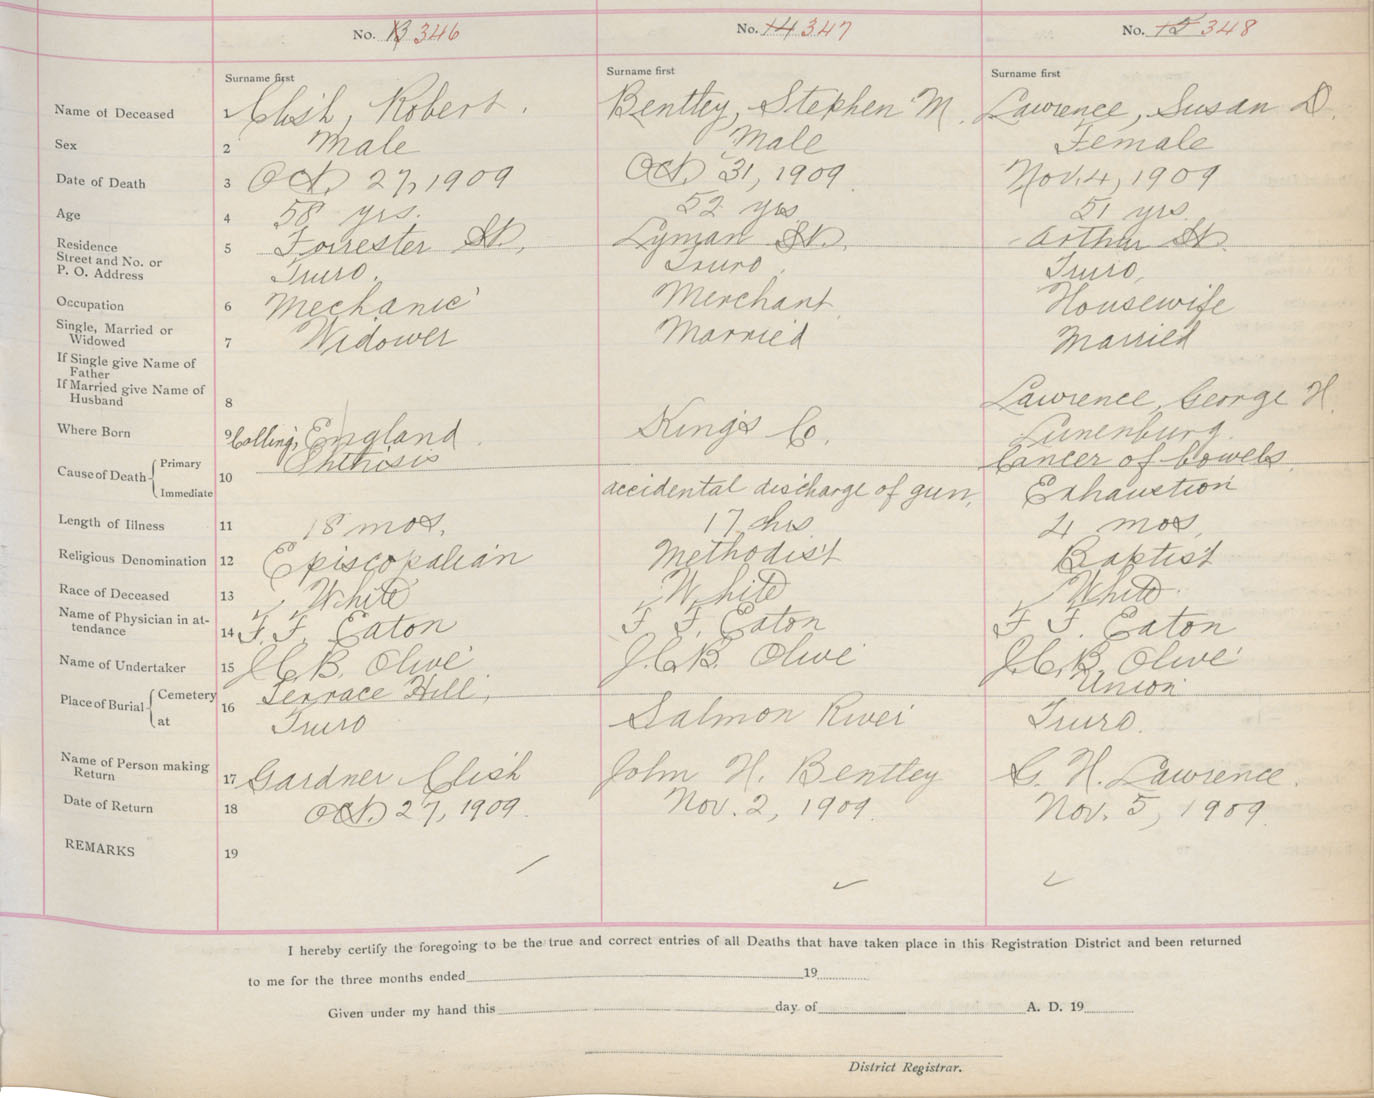 No. 13 346 No. 14 347 No. 15 348
Surname first Surname first Surname first
Name of Deceased 1 Clish, Robert. Bentley, Stephen M. Lawrence, Susan D.
Sex 2 Male Male Female
Date of Death 3 Oct. 27, 1909 Oct. 31, 1909 Nov. 4, 1909
Age 4 58 yrs. 52 yrs. 51 yrs.
Residence 5 Forrester St., Lyman St., Arthur St.
Street and No. or
P. O. Address Truro. Truro. Truro,
Occupation 6 Mechanic Merchant Housewife
Single, Married or
Widowed 7 Widower Married Married
If Single give Name of
Father
If Married give Name of
Husband 8 Lawrence, George H.
Where Born 9 England. Kings Co. Lunenburg.
Cause of Death Primary 10 Phthisis Cancer of bowels.
Immediate accidental discharge of gun. Exhaustion
Length of Illness 11 18 mos. 17 hrs 4 mos.
Religious Denomination 12 Episcopalian Methodist Baptist
Race of Deceased 13 White White White
Name of Physician in at-
tendance 14 F. F. Eaton F. F. Eaton F. F. Eaton
Name of Undertaker 15 J. C. B. Olive J. C. B. Olive J. C. B. Olive
Place of Burial Cemetery 16 Terrace Hill, Union
at Truro Salmon River Truro.
Name of Person making
Return 17 Gardner Clish John H. Bentley G. H. Lawrence.
Date of Return 18 Oct. 27, 1909. Nov. 2, 1909. Nov. 5, 1909.
REMARKS 19
I hereby certify the foregoing to be the true and correct entries of all Deaths that have taken place in this Registration District and been returned
to me for the three months ended 19
Given under my hand this day of A. D. 19
District Registrar.